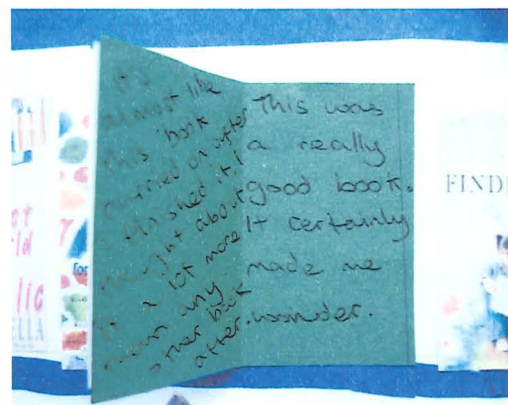 It's
almost like
this book
carried on after
I finished it i
thought about
it a lot more
than any
other book
after.
This was
a really
good book.
It certainly
made me
wonder.
FINDI
for
LIC
ELLA